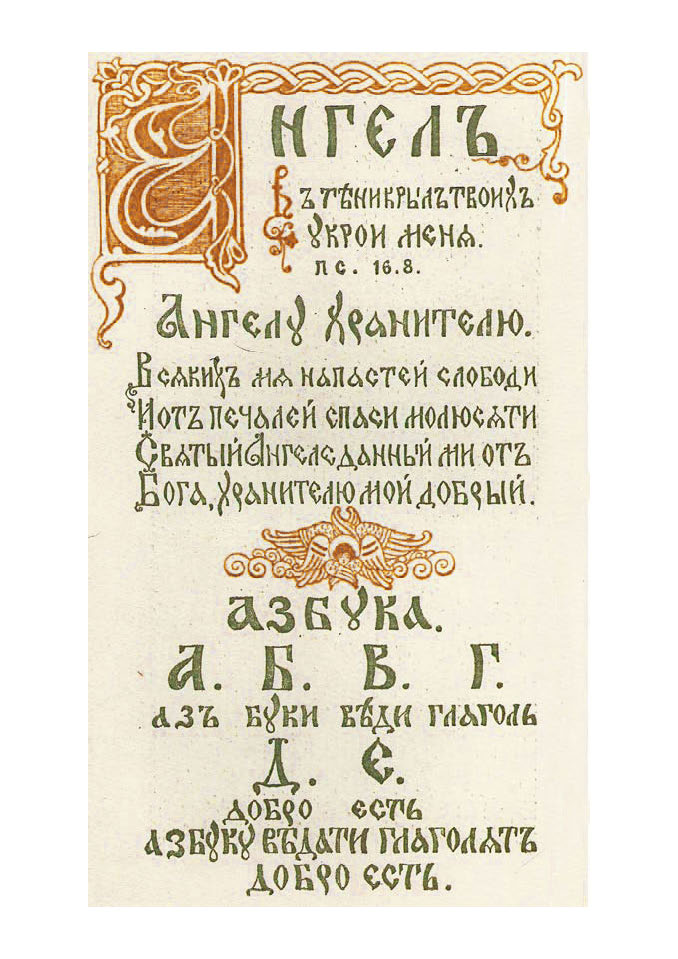 Ангелъ
Въ тѣни крылъ твоихъ
укрой меня.
пс. 16.8.
Ангелу Хранителю.
Всякихъ мя напастей слободи
И отъ печалей спаси молюся ти
Святый Ангеле данный ми отъ
Бога, хранителю мой добрый.
Азбука.
А. Б. В. Г.
азъ буки вѣди глаголь
Д. Е.
добро есть
азбуку вѣдати глаголятъ
добро есть.